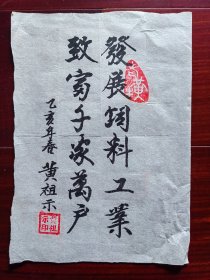 發展飼料工業
致富千家萬户
乙亥年春 黄祖示